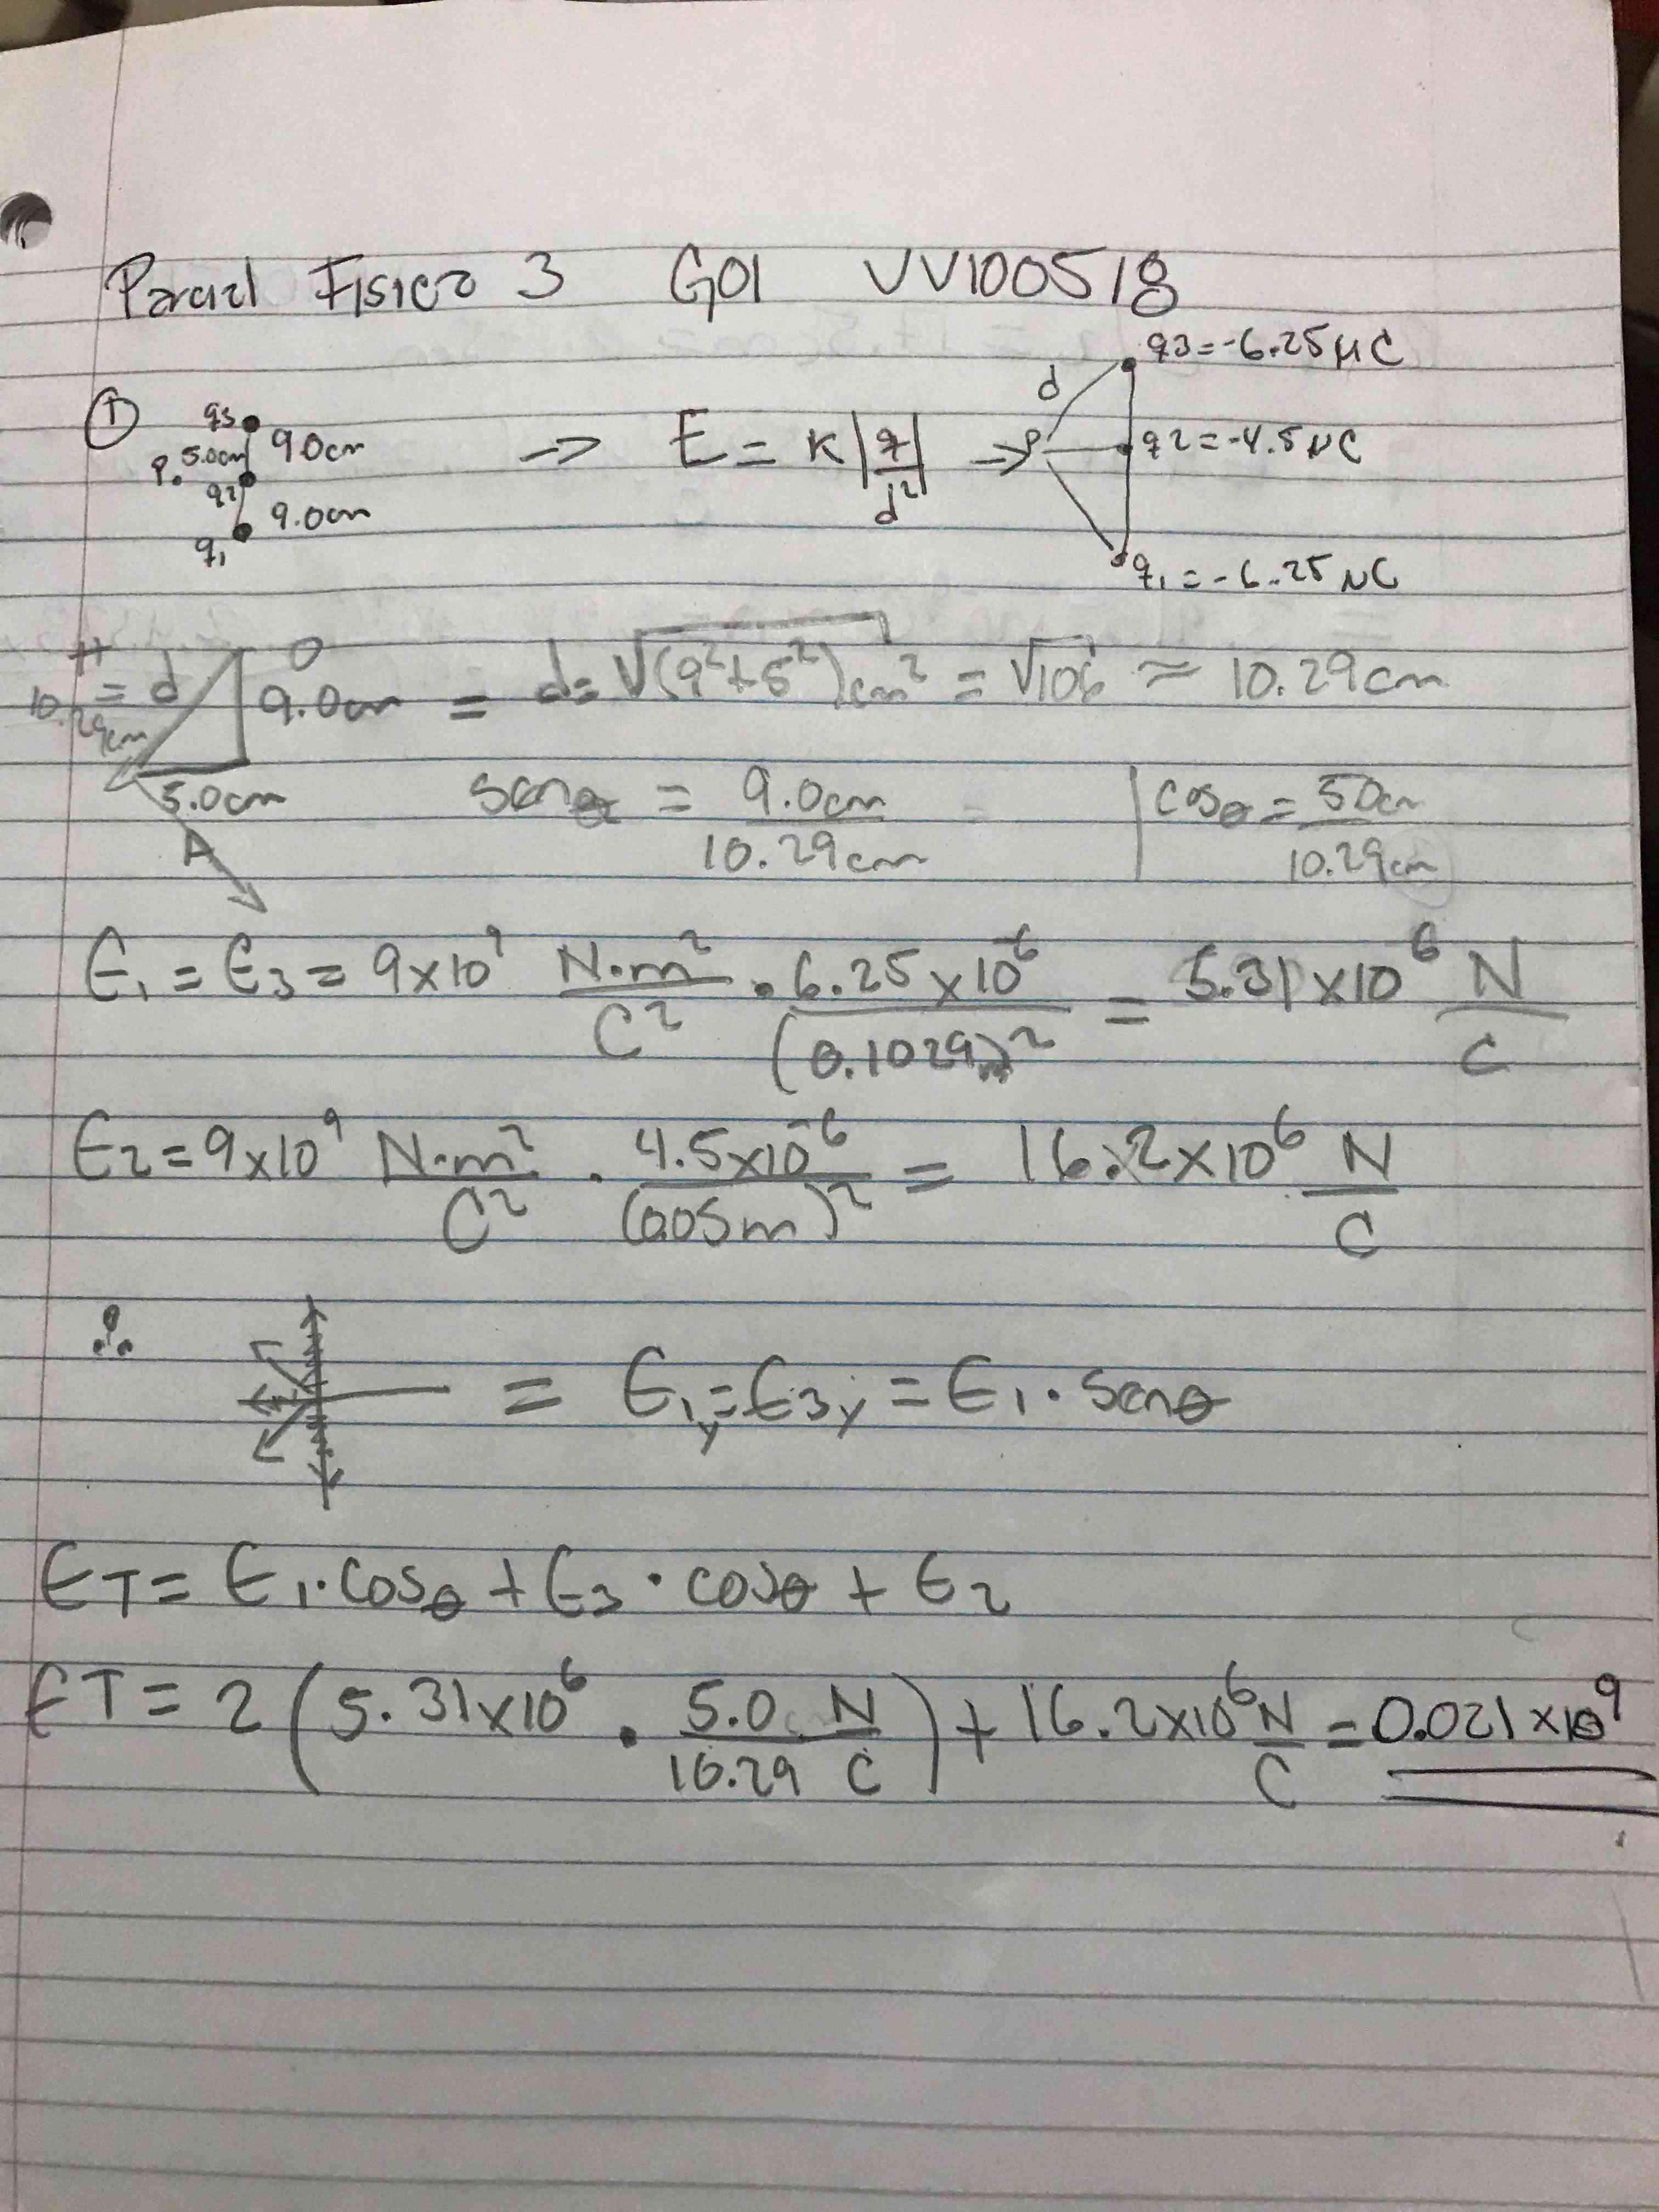 Parcial Fisica 3 G01 VV100518
① q3 9.0cm P. 5.0cm q2 9.0cm q1 → E = K|q/d²| → P d q3=-6.25μC q2=-4.5μC q1=-6.25μC
H 10.29cm = d O 9.0cm 5.0cm A = d=√(9²+5²)cm² = √106 ≈ 10.29cm
senθ = 9.0cm/10.29cm | cosθ = 5.0cm/10.29cm
E1 = E3 = 9x10⁹ N·m²/C² · 6.25x10⁻⁶/(0.1029m)² = 5.31x10⁶ N/C
E2 = 9x10⁹ N·m²/C² · 4.5x10⁻⁶/(0.05m)² = 16.2x10⁶ N/C
∴ = E1y = E3y = E1·senθ
ET = E1·cosθ + E3·cosθ + E2
ET = 2(5.31x10⁶ · 5.0/10.29 N/C) + 16.2x10⁶ N/C = 0.021x10⁹